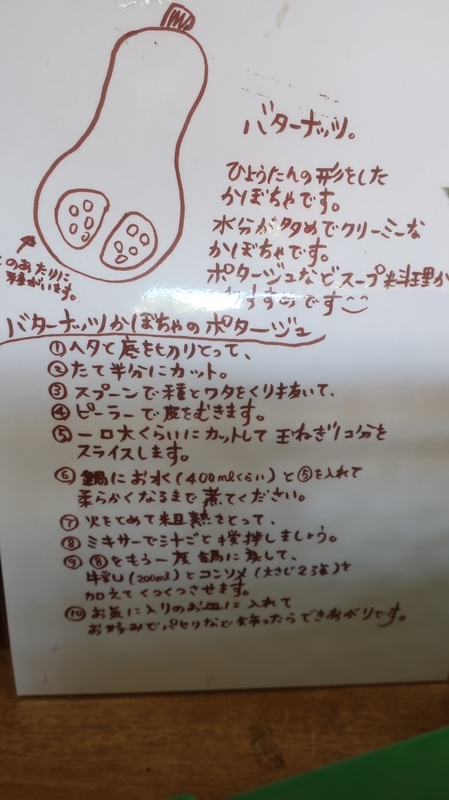 バターナッツ。
ひょうたんの形をした
かぼちゃです。
水分が多めでクリーミーな
かぼちゃです。
ポタージュなどスープ料理が
おすすめです
このあたりに
種がいます。
バターナッツかぼちゃのポタージュ
①ヘタと底を切りとって、
②たて半分にカット。
③スプーンで種とワタをくりぬいて、
④ピーラーで皮をむきます。
⑤一口大くらいにカットして玉ねぎ1コ分を
スライスします。
⑥鍋にお水(400mlくらい)と⑤を入れて
柔らかくなるまで煮てください。
⑦火をとめて粗熱をとって、
⑧ミキサーでミナごと撹拌しましょう。
⑨⑧をもう一度鍋に戻して、
牛乳(200ml)とコンソメ(大さじ2
加えてくつくつさせます。
⑩お気に入りのお皿に入れて
お好みでパセリなど飾ったらできあがりです。